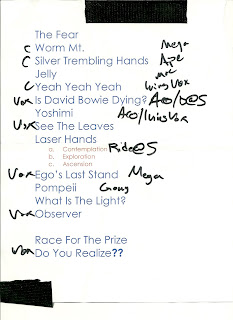 The Fear
C Worm Mt. Mega
C Silver Trembling Hands Ape
Jelly
C Yeah Yeah Yeah Vox
Vox Is David Bowie Dying?
Yoshimi
Vox See The Leaves
Laser Hands
a. Contemplation
b. Exploration
c. Ascension
Vox Ego's Last Stand Mega
Pompeii Gong
What Is The Light?
Vox Observer
Race For The Prize
Vox Do You Realize??